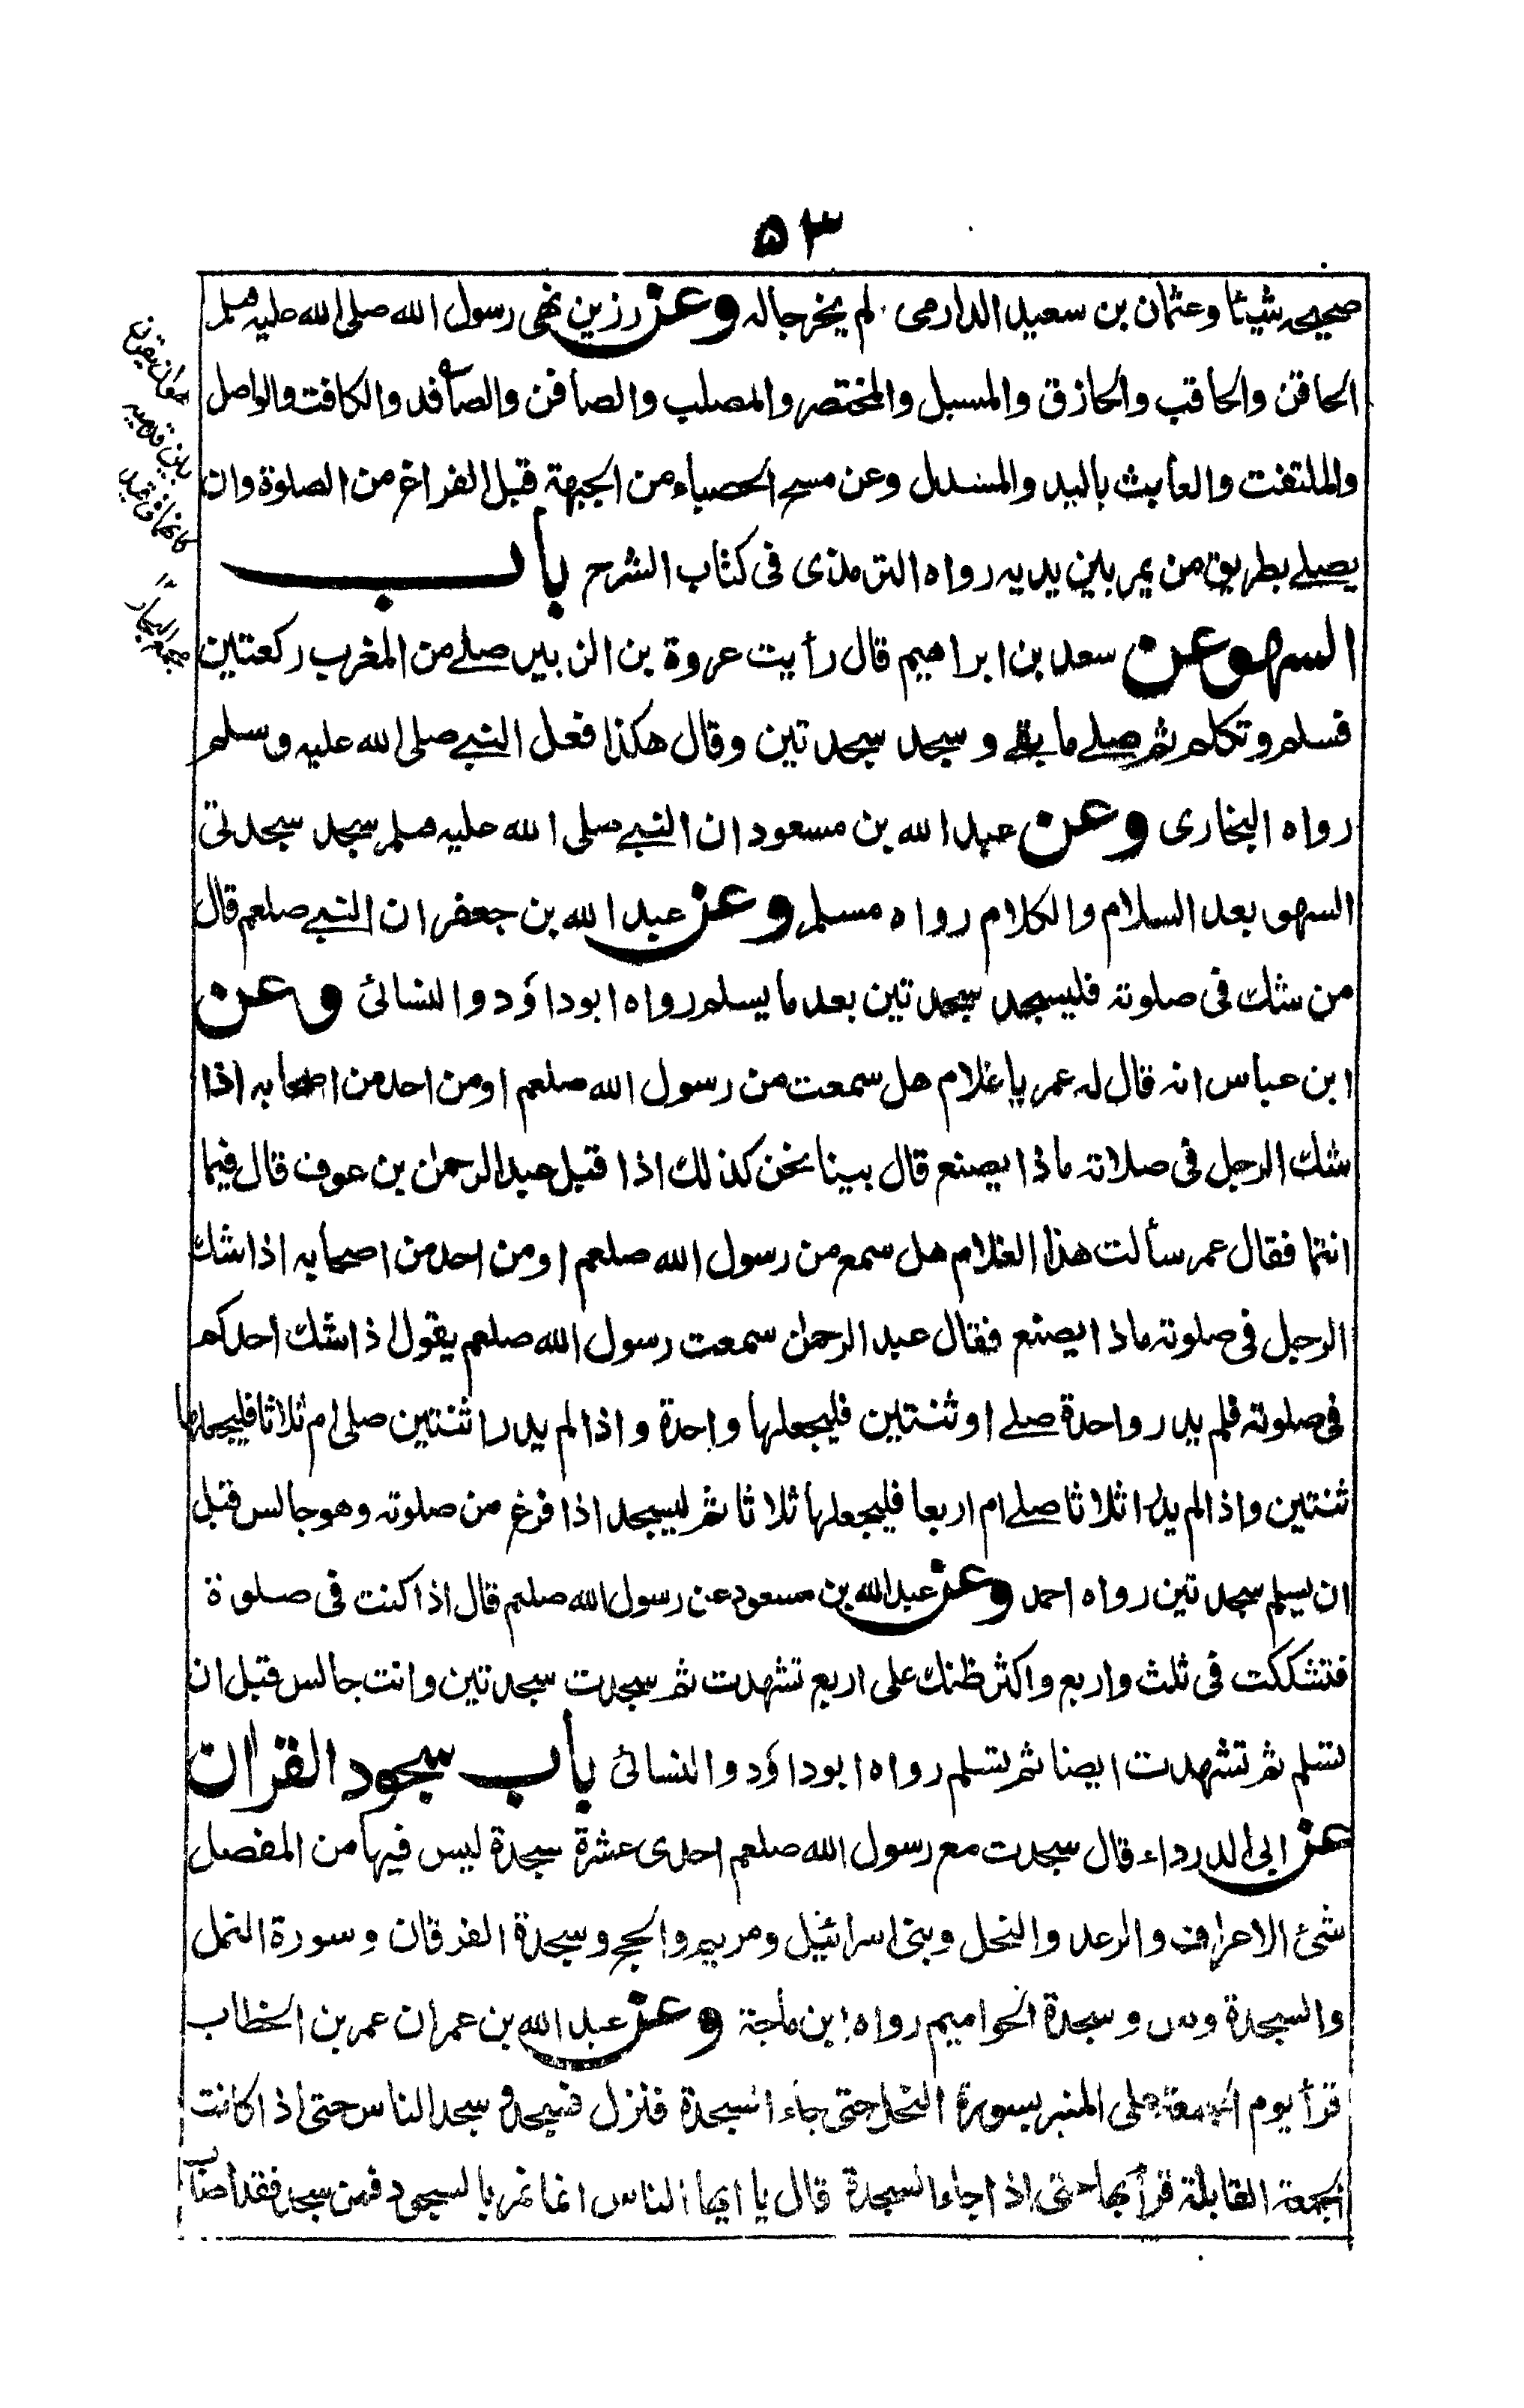 ۵۳
صحيحہ شيئا وعثمان بن سعيد الدارمى لم يخرجا له وعن رزين نهى رسول الله صلى الله عليہ وسلم
الحاقن والحاقب والحازق والمسبل والمختصر والمصلب والصافن والصافد والكافت والواصل
والملتفت والعابث باليد والمسدل وعن مسح الحصباء من الجبهة قبل الفراغ من الصلوة وان
يصلے بطريق من يمر بين يديہ رواه الترمذى فى كتاب الشرح باب
السهو عن سعد بن ابراهيم قال رأيت عروة بن الزبير صلے من المغرب ركعتين
فسلم وتكلم ثم صلے ما بقے و سجد سجدتين وقال هكذا فعل النبے صلى الله عليہ وسلم
رواه البخارى وعن عبد الله بن مسعود ان النبے صلى الله عليہ وسلم سجد سجدتى
السهو بعد السلام والكلام رواه مسلم وعن عبد الله بن جعفر ان النبے صلعم قال
من شك فى صلوتہ فليسجد سجدتين بعد ما يسلم رواه ابوداؤد والنسائى وعن
ابن عباس انہ قال لہ عمر يا غلام هل سمعت من رسول الله صلعم اومن احد من اصحابہ اذا
شك الرجل فى صلاتہ ماذا يصنع قال بينا نحن كذلك اذا قبل عبد الرحمن بن عوف قال فيما
انتما فقال عمر سألت هذا الغلام هل سمع من رسول الله صلعم اومن احد من اصحابہ اذا شك
الرجل فى صلوتہ ماذا يصنع فقال عبد الرحمن سمعت رسول الله صلعم يقول اذا شك احدكم
فى صلوتہ فلم يدر واحدة صلے او ثنتين فليجعلها واحدة واذا لم يدر اثنتين صلى ام ثلاثا فليجعلها
ثنتين واذا لم يدر اثلاثا صلے ام اربعا فليجعلها ثلاثا ثم ليسجد اذا فرغ من صلوتہ وهو جالس قبل
ان يسلم سجدتين رواه احمد وعن عبد الله بن مسعود عن رسول الله صلعم قال اذا كنت فى صلوة
فتشككت فى ثلث واربع واكثر ظنك على اربع تشهدت ثم سجدت سجدتين وانت جالس قبل ان
تسلم ثم تشهدت ايضا ثم تسلم رواه ابوداؤد والنسائى باب سجود القران
عن ابى الدرداء قال سجدت مع رسول الله صلعم احدى عشرة سجدة ليس فيها من المفصل
شئ الاعراف والرعد والنحل وبنى اسرائيل ومريم والحج وسجدة الفرقان وسورة النمل
والسجدة وص وسجدة الحواميم رواه ابن ماجة وعن عبد الله بن عمران عمر بن الخطاب
قرأ يوم الجمعة على المنبر بسورة النحل حتى جاء السجدة فنزل فسجد و سجد الناس حتى اذا كانت
الجمعة القابلة قرأ بها حتى اذا جاء السجدة قال يا ايها الناس انما نمر بالسجود فمن سجد فقد اصاب